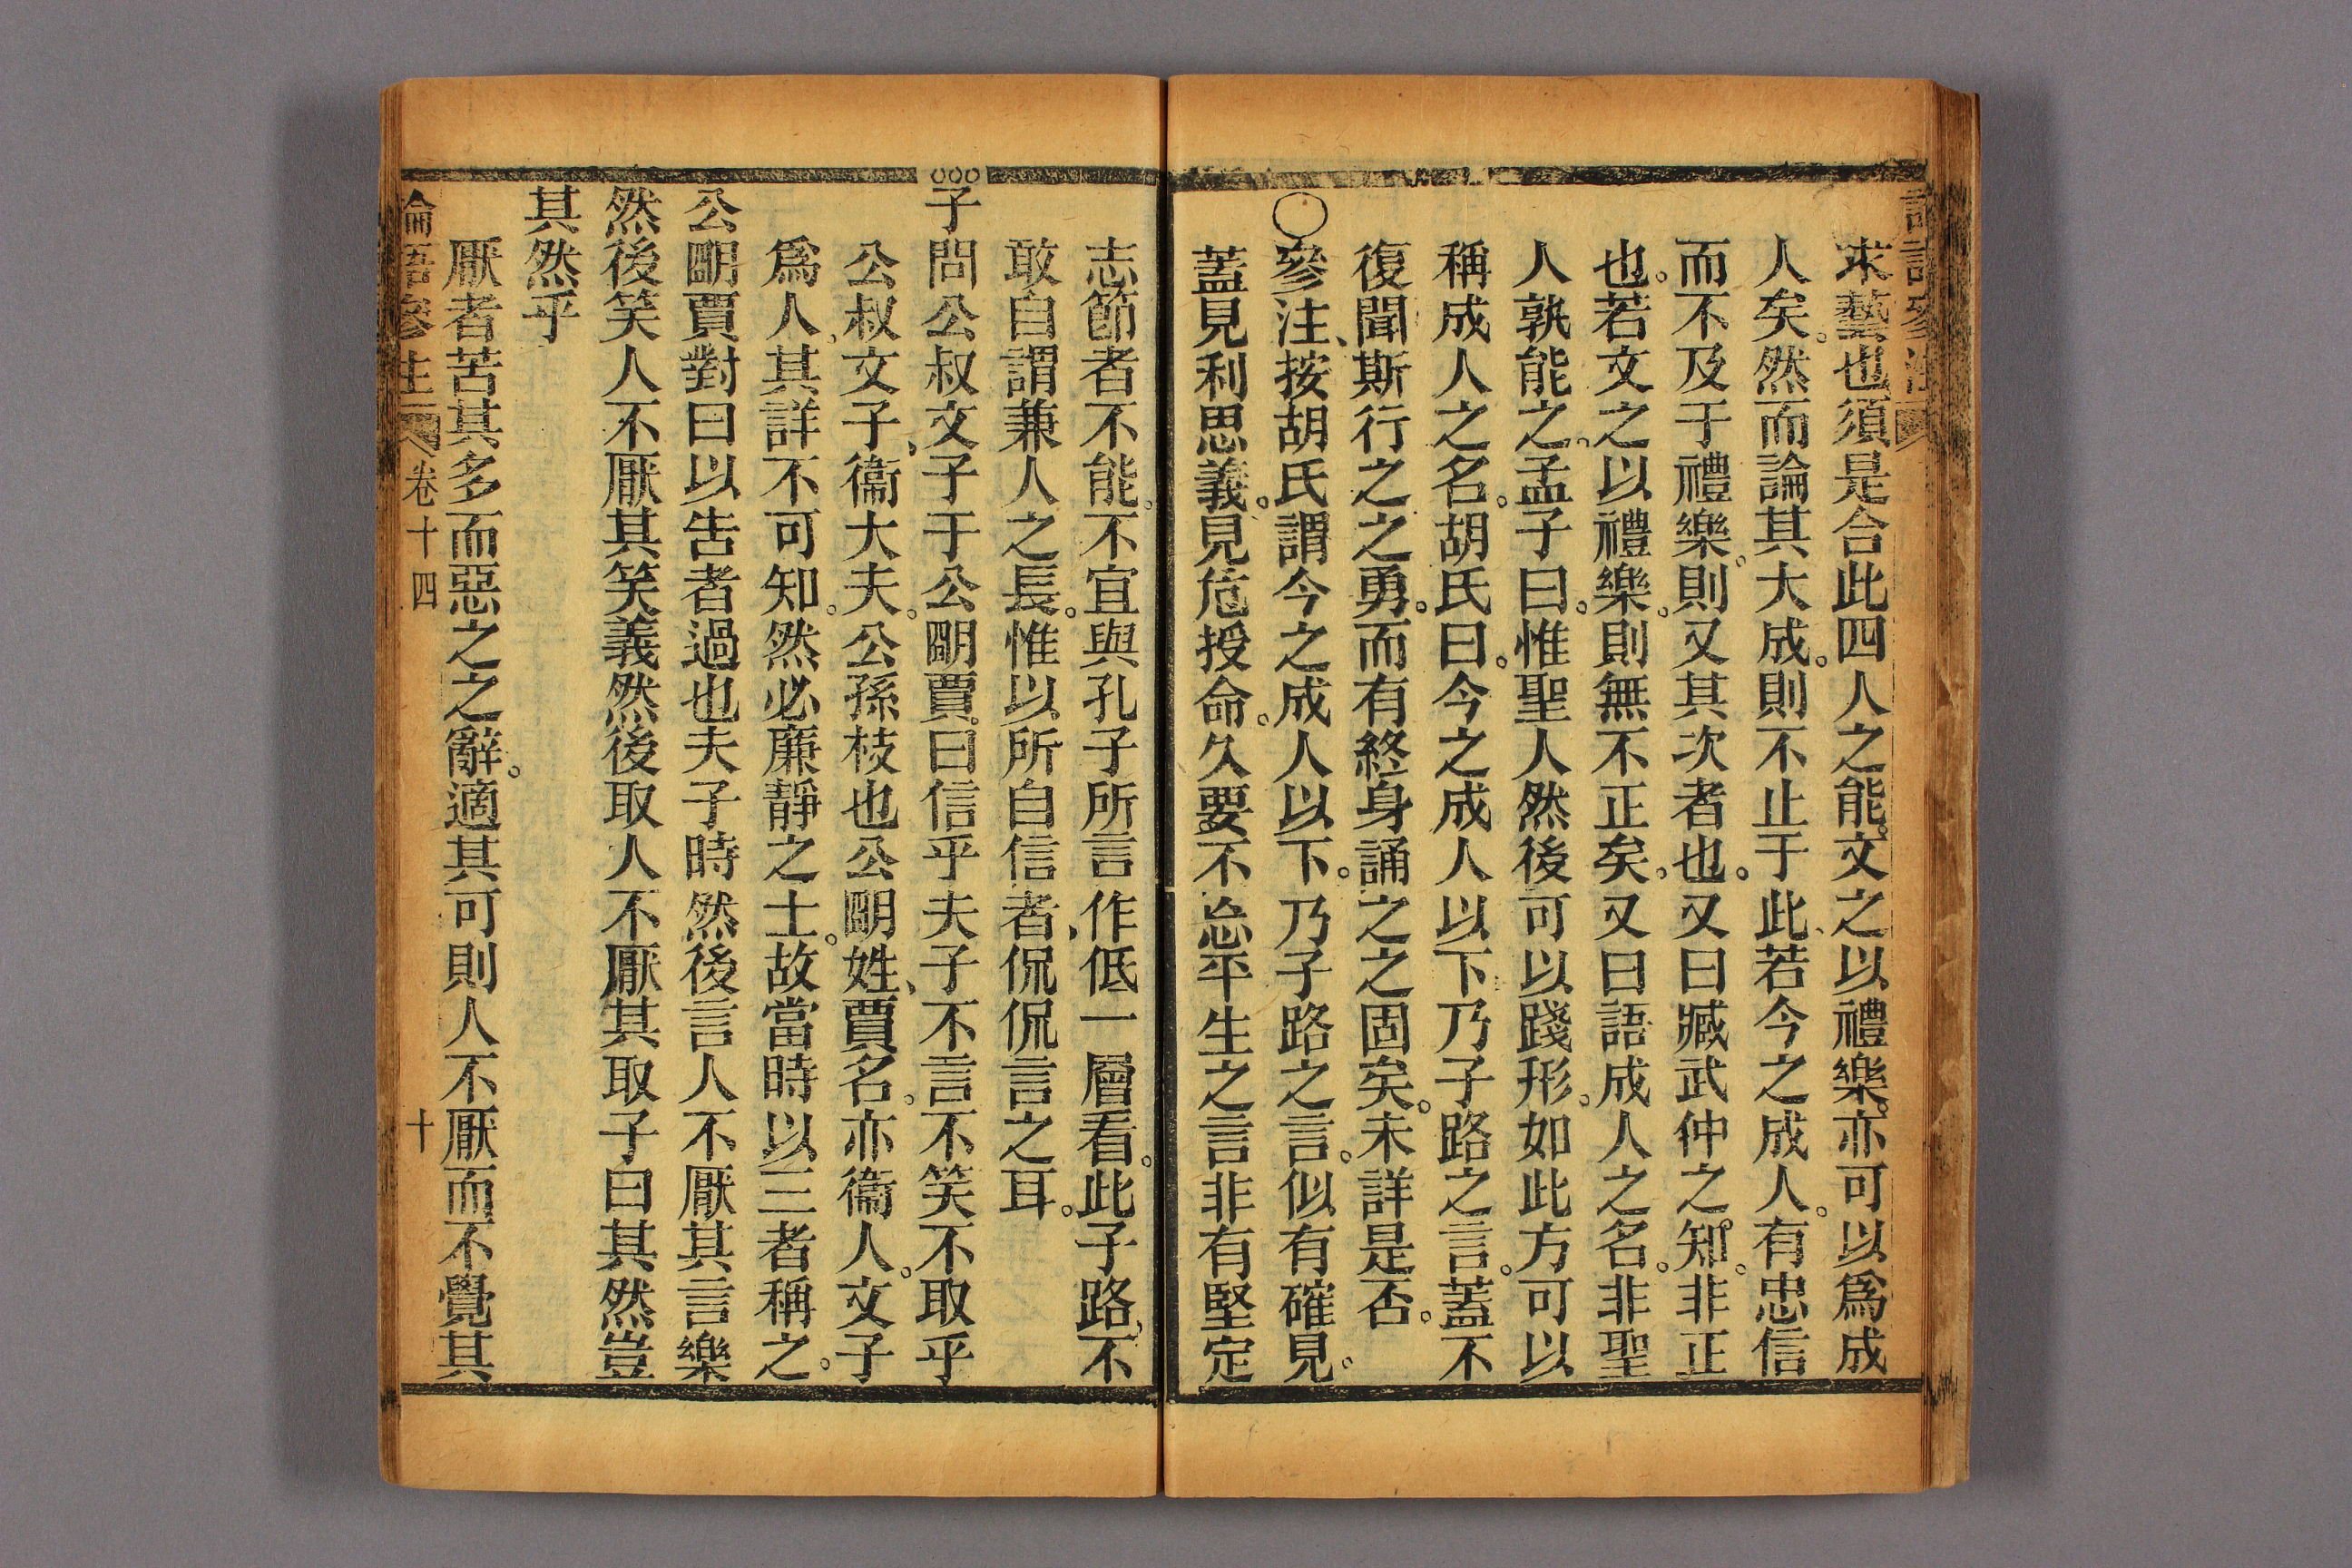 求藝也須是合此四人之能。文之以禮樂。亦可以爲成
人矣。然而論其大成。則不止于此、若今之成人。有忠信
而不及于禮樂。則又其次者也。又曰臧武仲之知。非正
也。若文之以禮樂。則無不正矣。又曰語成人之名。非聖
人孰能之。孟子曰。惟聖人然後可以踐形。如此方可以
稱成人之名。胡氏曰。今之成人以下乃子路之言。蓋不
復聞斯行之之勇。而有終身誦之之固矣。未詳是否。
○參注、按胡氏謂今之成人以下。乃子路之言。似有確見。
蓋見利思義。見危授命。久要不忘平生之言非有堅定
志節者不能。不宜與孔子所言作低一層看。此子路、不
敢自謂兼人之長。惟以所自信者、侃侃言之耳。
○○○子問公叔文子于公明賈。曰信乎夫子不言不笑不取乎
公叔文子、衞大夫。公孫枝也公明姓、賈名。亦衞人。文子
爲人、其詳不可知。然必廉靜之士。故當時以三者稱之。
公明賈對曰以告者過也夫子時然後言人不厭其言樂
然後笑人不厭其笑義然後取人不厭其取子曰其然豈
其然乎
厭者苦其多而惡之之辭。適其可則人不厭而不覺其
論語參注 卷十四 十